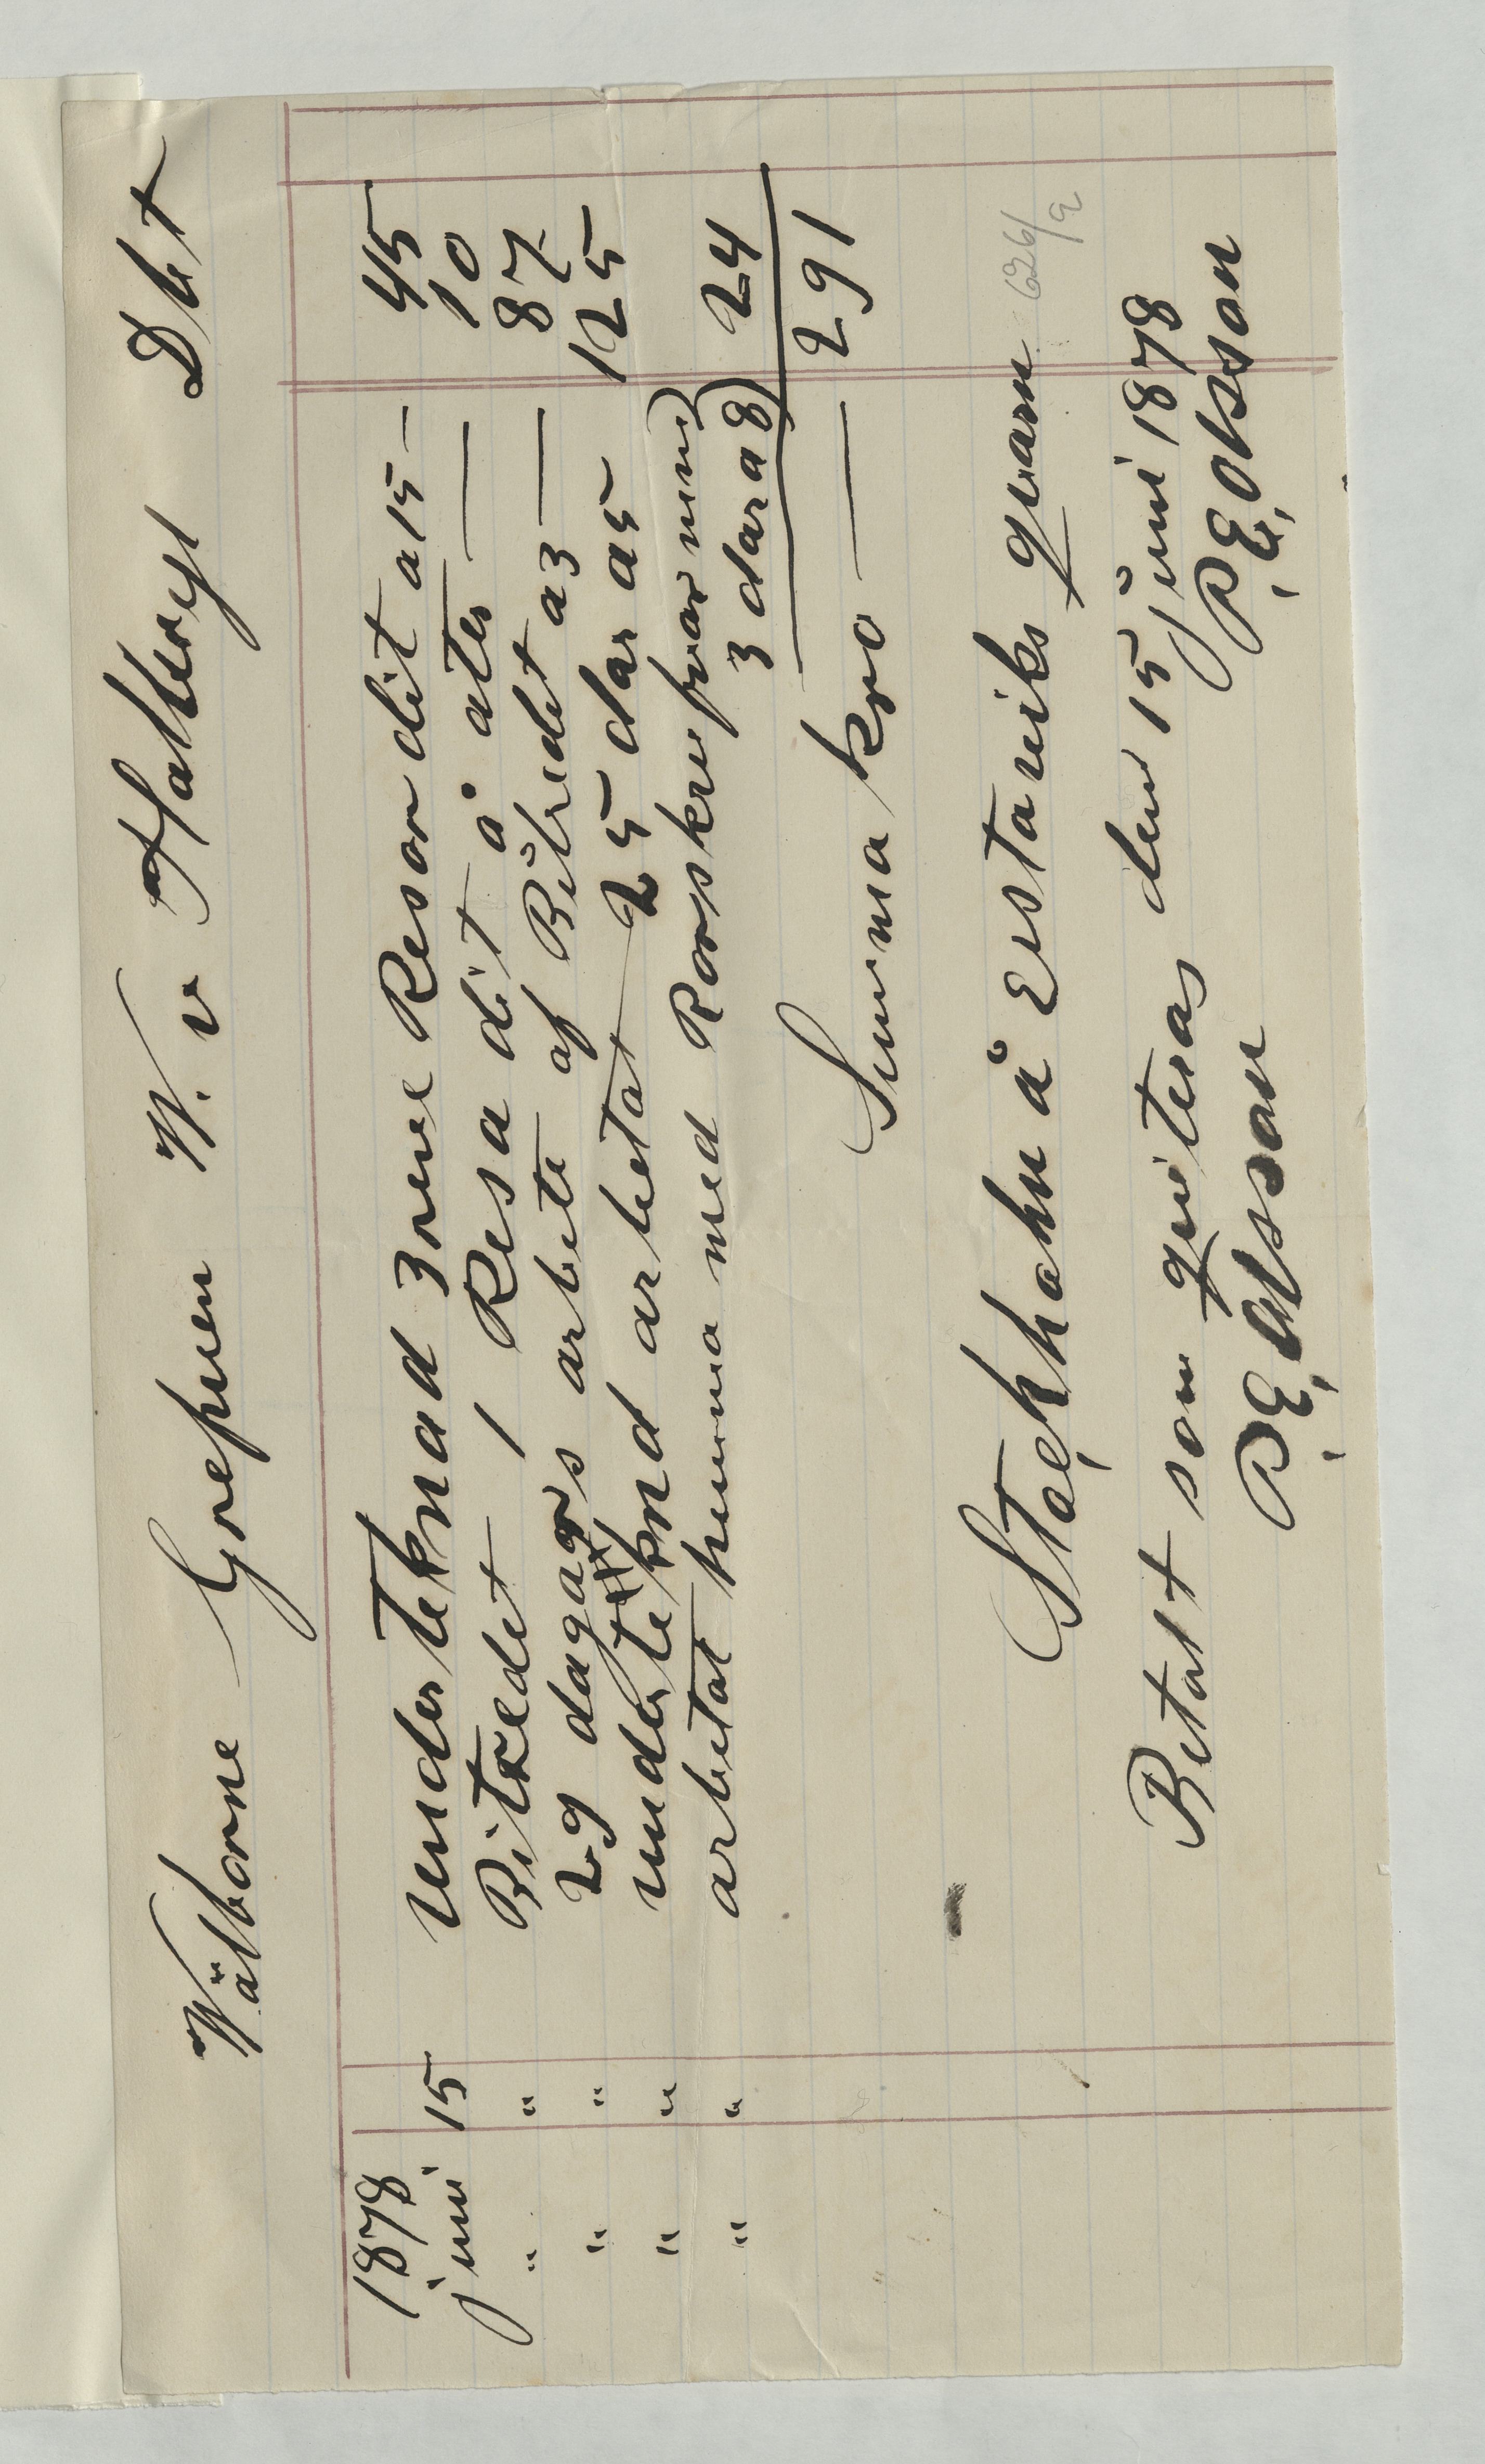 Wälborne Grefwen W. v Hallwyl Dbt
1878
juni 15 Underteknad 3ne Resor dit a 15 — 45
" " Biträdet 1 Resa dit å åter — 10
" " 29 dagars arbete af Biträdet a 3 — 87
" " underteknd arbetat 25 dar a 5 125
" " arbetat hemma med 3 dar a 8) 24
Summa kro — 291
Stockholm å Eistaviks qvarn 626/a
Betalt som qviteras den 15 juni 1878
P.E. Olsson P.E. Olsson